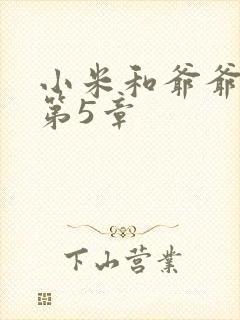 小米和爷爷
第5章
下山营業